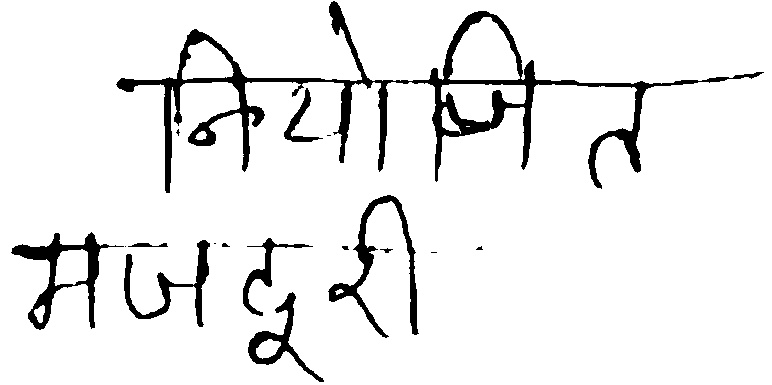 नियोजित
मजदूरी